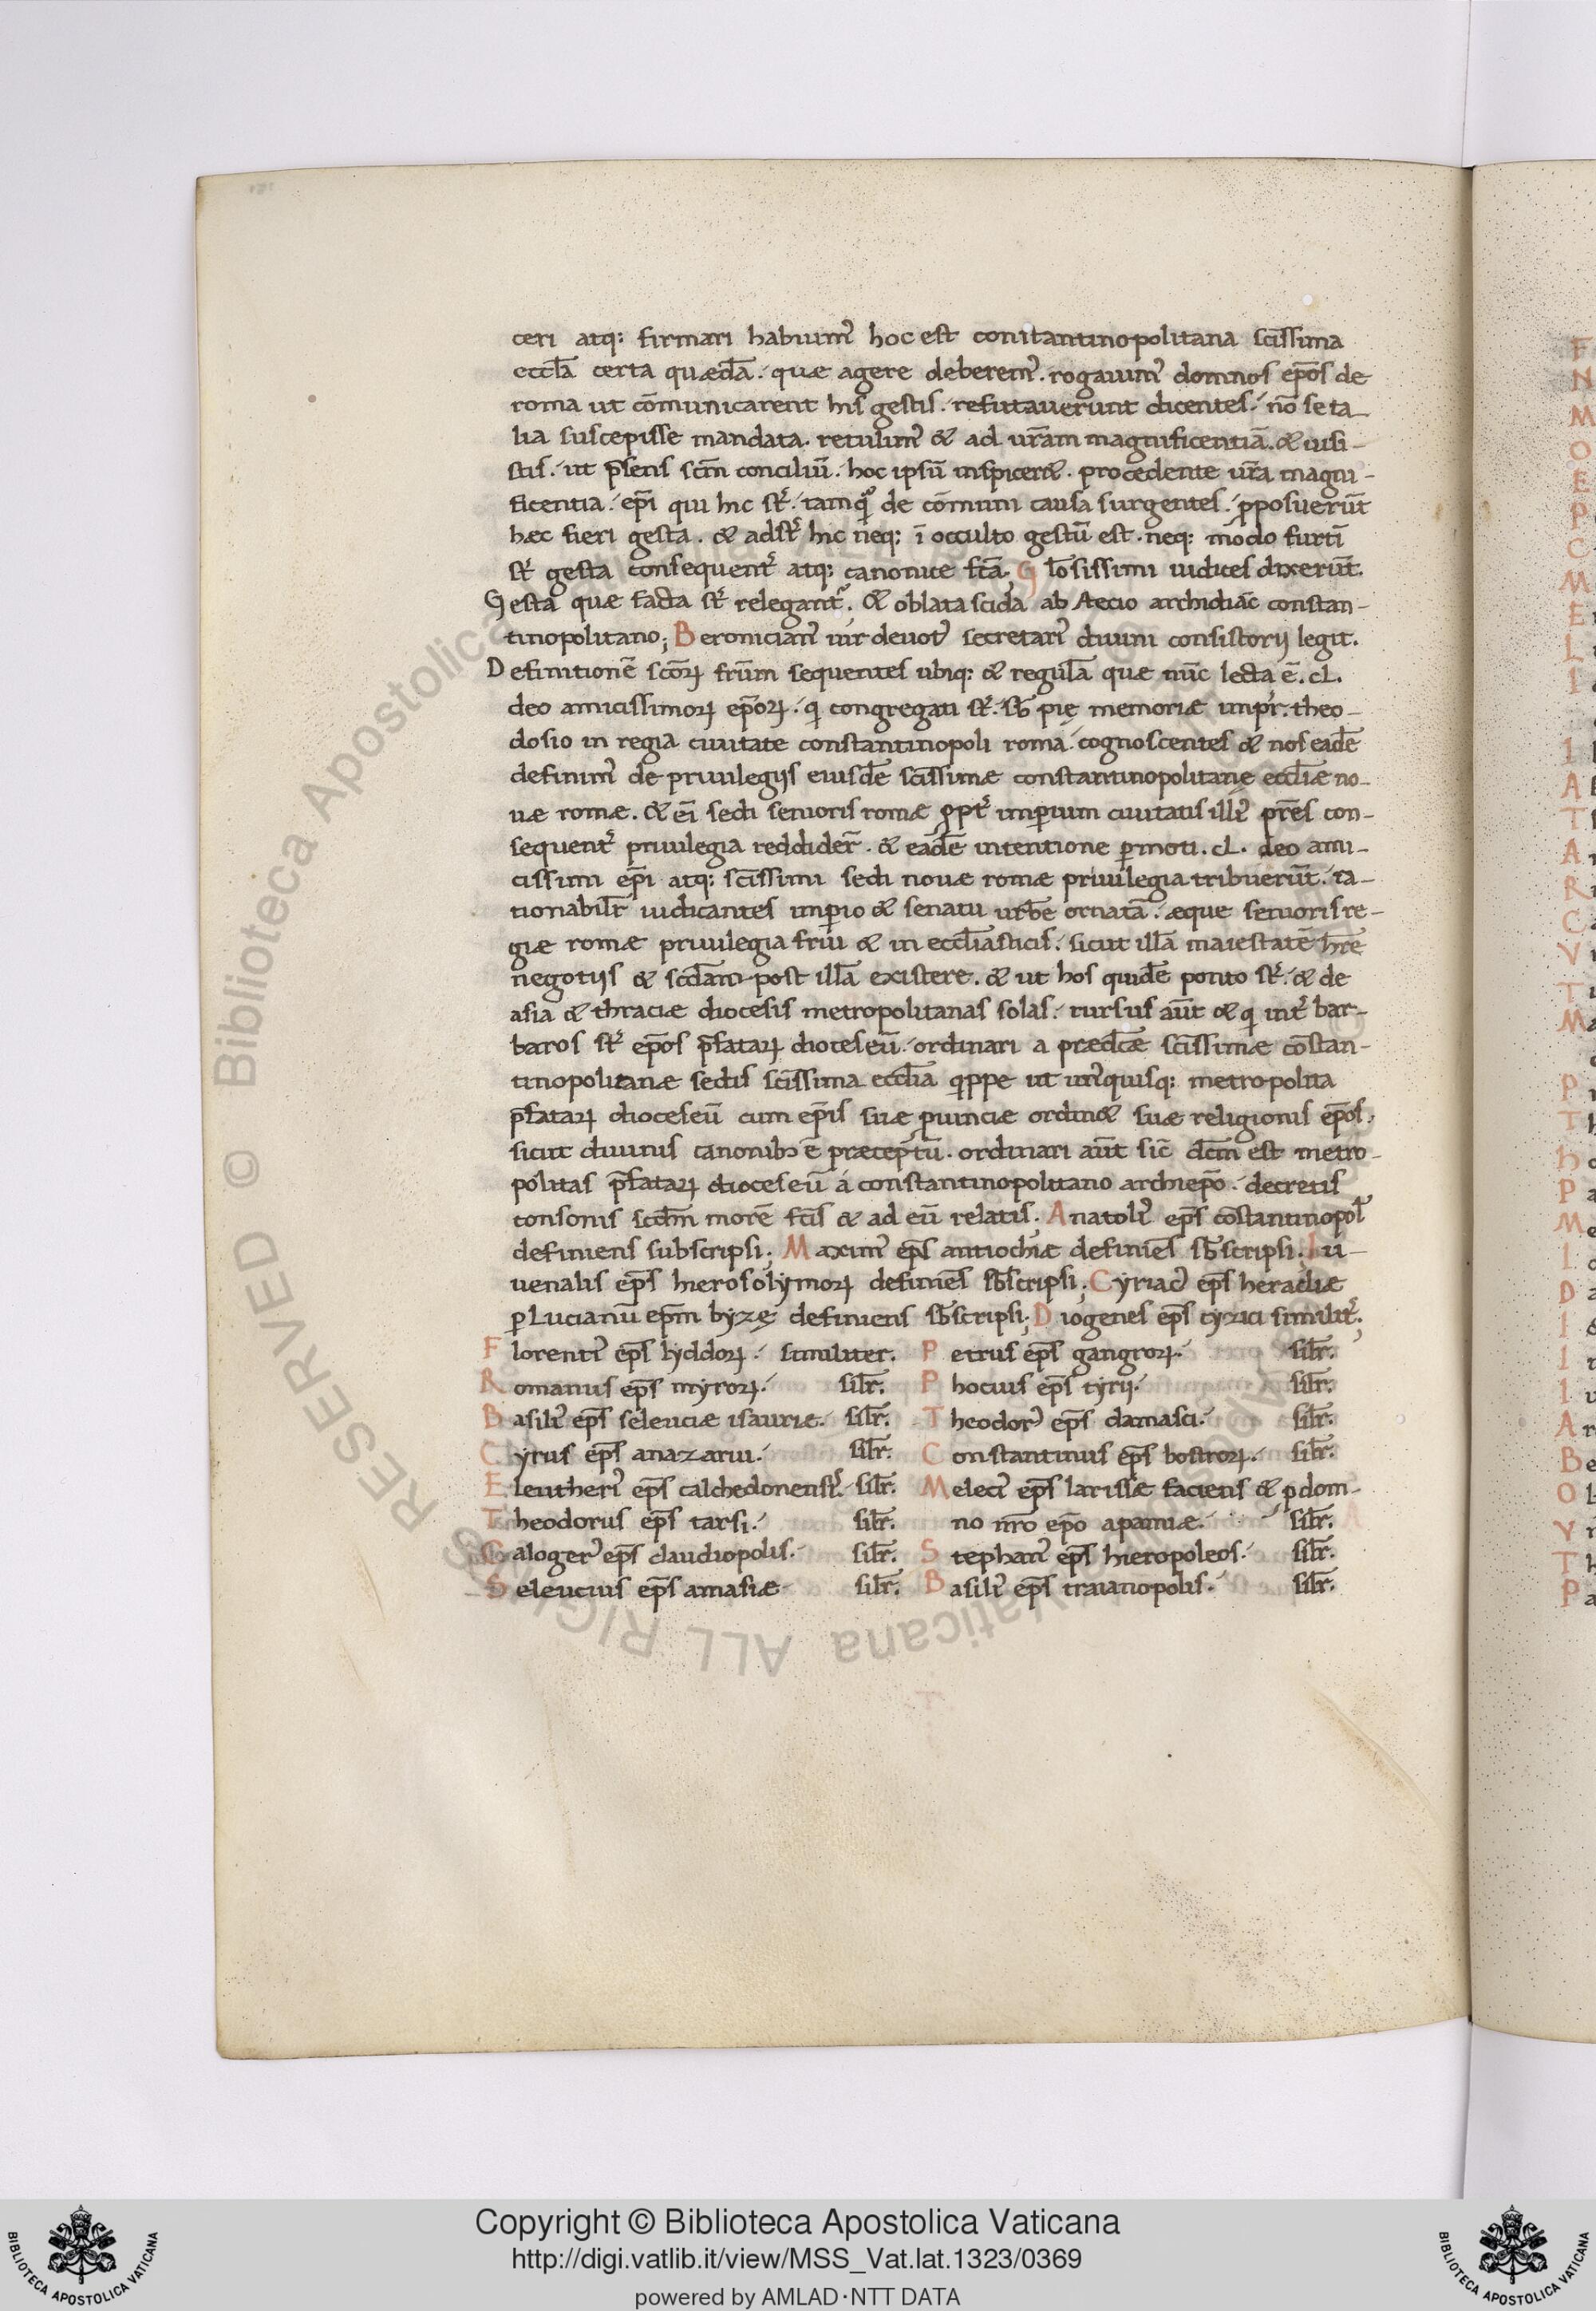 ceri atq: firmari habuim᾿ hoc est constantinopolitana sc̄issima
eccl̄a certa quædā. quæ agere deberem᾿. rogauim᾿ domnos ep̄os de
roma ut cōmunicarent his gestis. refutauerunt dicentes. nō se ta-
lia suscepisse mandata. retulim᾿ & ad ur̄am magnificentiā. & iussi-
stis. ut p̄sens sc̄m conciliū. hoc ipsū inspicer&. procedente ur̄a magni-
ficentia. ep̄i qui hic st᾿. tamq̄ de cōmuni causa surgentes. pposuerūt
hæc fieri gesta. & adst᾿ hic neq: ī occulto gestū est. neq: modo furtī
st᾿ gesta consequent᾿ atq: canonice fc̄a; Glōsissimi iudices dixerūt.
Gesta quæ facta st᾿ relegant᾿. & oblata scida ab Aecio archidiac̄ constan-
tinopolitano; Beronician᾿ uir deuot᾿ secretari᾿ diuini consistorij legit.
Definitionē sc̄oꝝ fr̄um sequentes ubiq: & regulā quæ nūc lecta ē. cl.
deo amicissimoꝝ ep̄oꝝ. qi congregati st᾿. sb̄ pię memoriæ imp̄r. theo-
dosio in regia ciuitate constantinopoli roma. cognoscentes & nos eadē
definim᾿ de priuilegijs eiusdē sc̄issimæ constantinopolitanę eccl̄iæ no-
uæ romæ. & ei sedi senioris romæ ꝓpt᾿ imꝑium ciuitatis illi᾿ pr̄es con-
sequent᾿ priuilegia reddider̄. & eadē intentione ꝑmoti. cl. deo ami-
cissimi ep̄i atq: sc̄issimi sedi nouæ romæ priuilegia tribuerūt. ra-
tionabilr̄ iudicantes imꝑio & senatu urbē ornatā. æque senioris re-
giæ romæ priuilegia frui & in eccl̄iasticis. sicut illā maiestatē hr̄e
negotijs & scd̄am post illā existere. & ut hos quidē ponto st᾿. & de
asia & thraciæ diocesis metropolitanas solas. rursus aūt & qi int᾿ bar-
baros st᾿ ep̄os p̄fataꝝ dioceseū. ordinari a prædc̄æ sc̄issimæ cōstan-
tinopolitanæ sedis sc̄issima eccl̄ia qippe ut un᾿quisq: metropolita
p̄fataꝝ dioceseū cum ep̄is suæ ꝓuinciæ ordin& suæ religionis ep̄os.
sicut diuinis canonib; ē præceptū. ordinari aūt sic̄ dc̄m est metro-
politas p̄fataꝝ dioceseū á constantinopolitano archiep̄o. decretis
consonis scd̄m morē fc̄is & ad eū relatis; Anatoli᾿ ep̄s cōstantinopol᾿
definiens subscripsi; Maxim᾿ ep̄s antiochiæ definiēs sb̄scripsi; Iu-
uenalis ep̄s hierosolymoꝝ definiēs sb̄scripsi; Cyriac᾿ ep̄s heracliæ
ꝑ Lucianū ep̄m byzę definiens sb̄scripsi; Diogenes ep̄s cyzici similit᾿;
Florenti᾿ ep̄s lyddoꝝ. similiter. Petrus ep̄s gangroꝝ. silr̄.
Romanus ep̄s myroꝝ. silr̄. Phocius ep̄s tyrij. silr̄.
Basili᾿ ep̄s seleuciæ isauriæ. silr̄. Theodor᾿ ep̄s damasci. silr̄.
Cyrus ep̄s anazarui. silr̄. Constantinus ep̄s bostroꝝ. silr̄.
Eleutheri᾿ ep̄s calchedonensis᾿. silr̄. Meleci᾿ ep̄s larissæ faciens & ꝑ dom-
Theodorus ep̄s tarsi. silr̄. no nr̄o ep̄o apamiæ. silr̄.
Caloger᾿ ep̄s claudiopolis. silr̄. Stephan᾿ ep̄s hieropoleos. silr̄.
Seleucius ep̄s amasiæ silr̄. Basili᾿ ep̄s traianopolis. silr̄.
Copyright © Biblioteca Apostolica Vaticana
http://digi.vatlib.it/view/MSS_Vat.lat.1323/0369
powered by AMLAD·NTT DATA